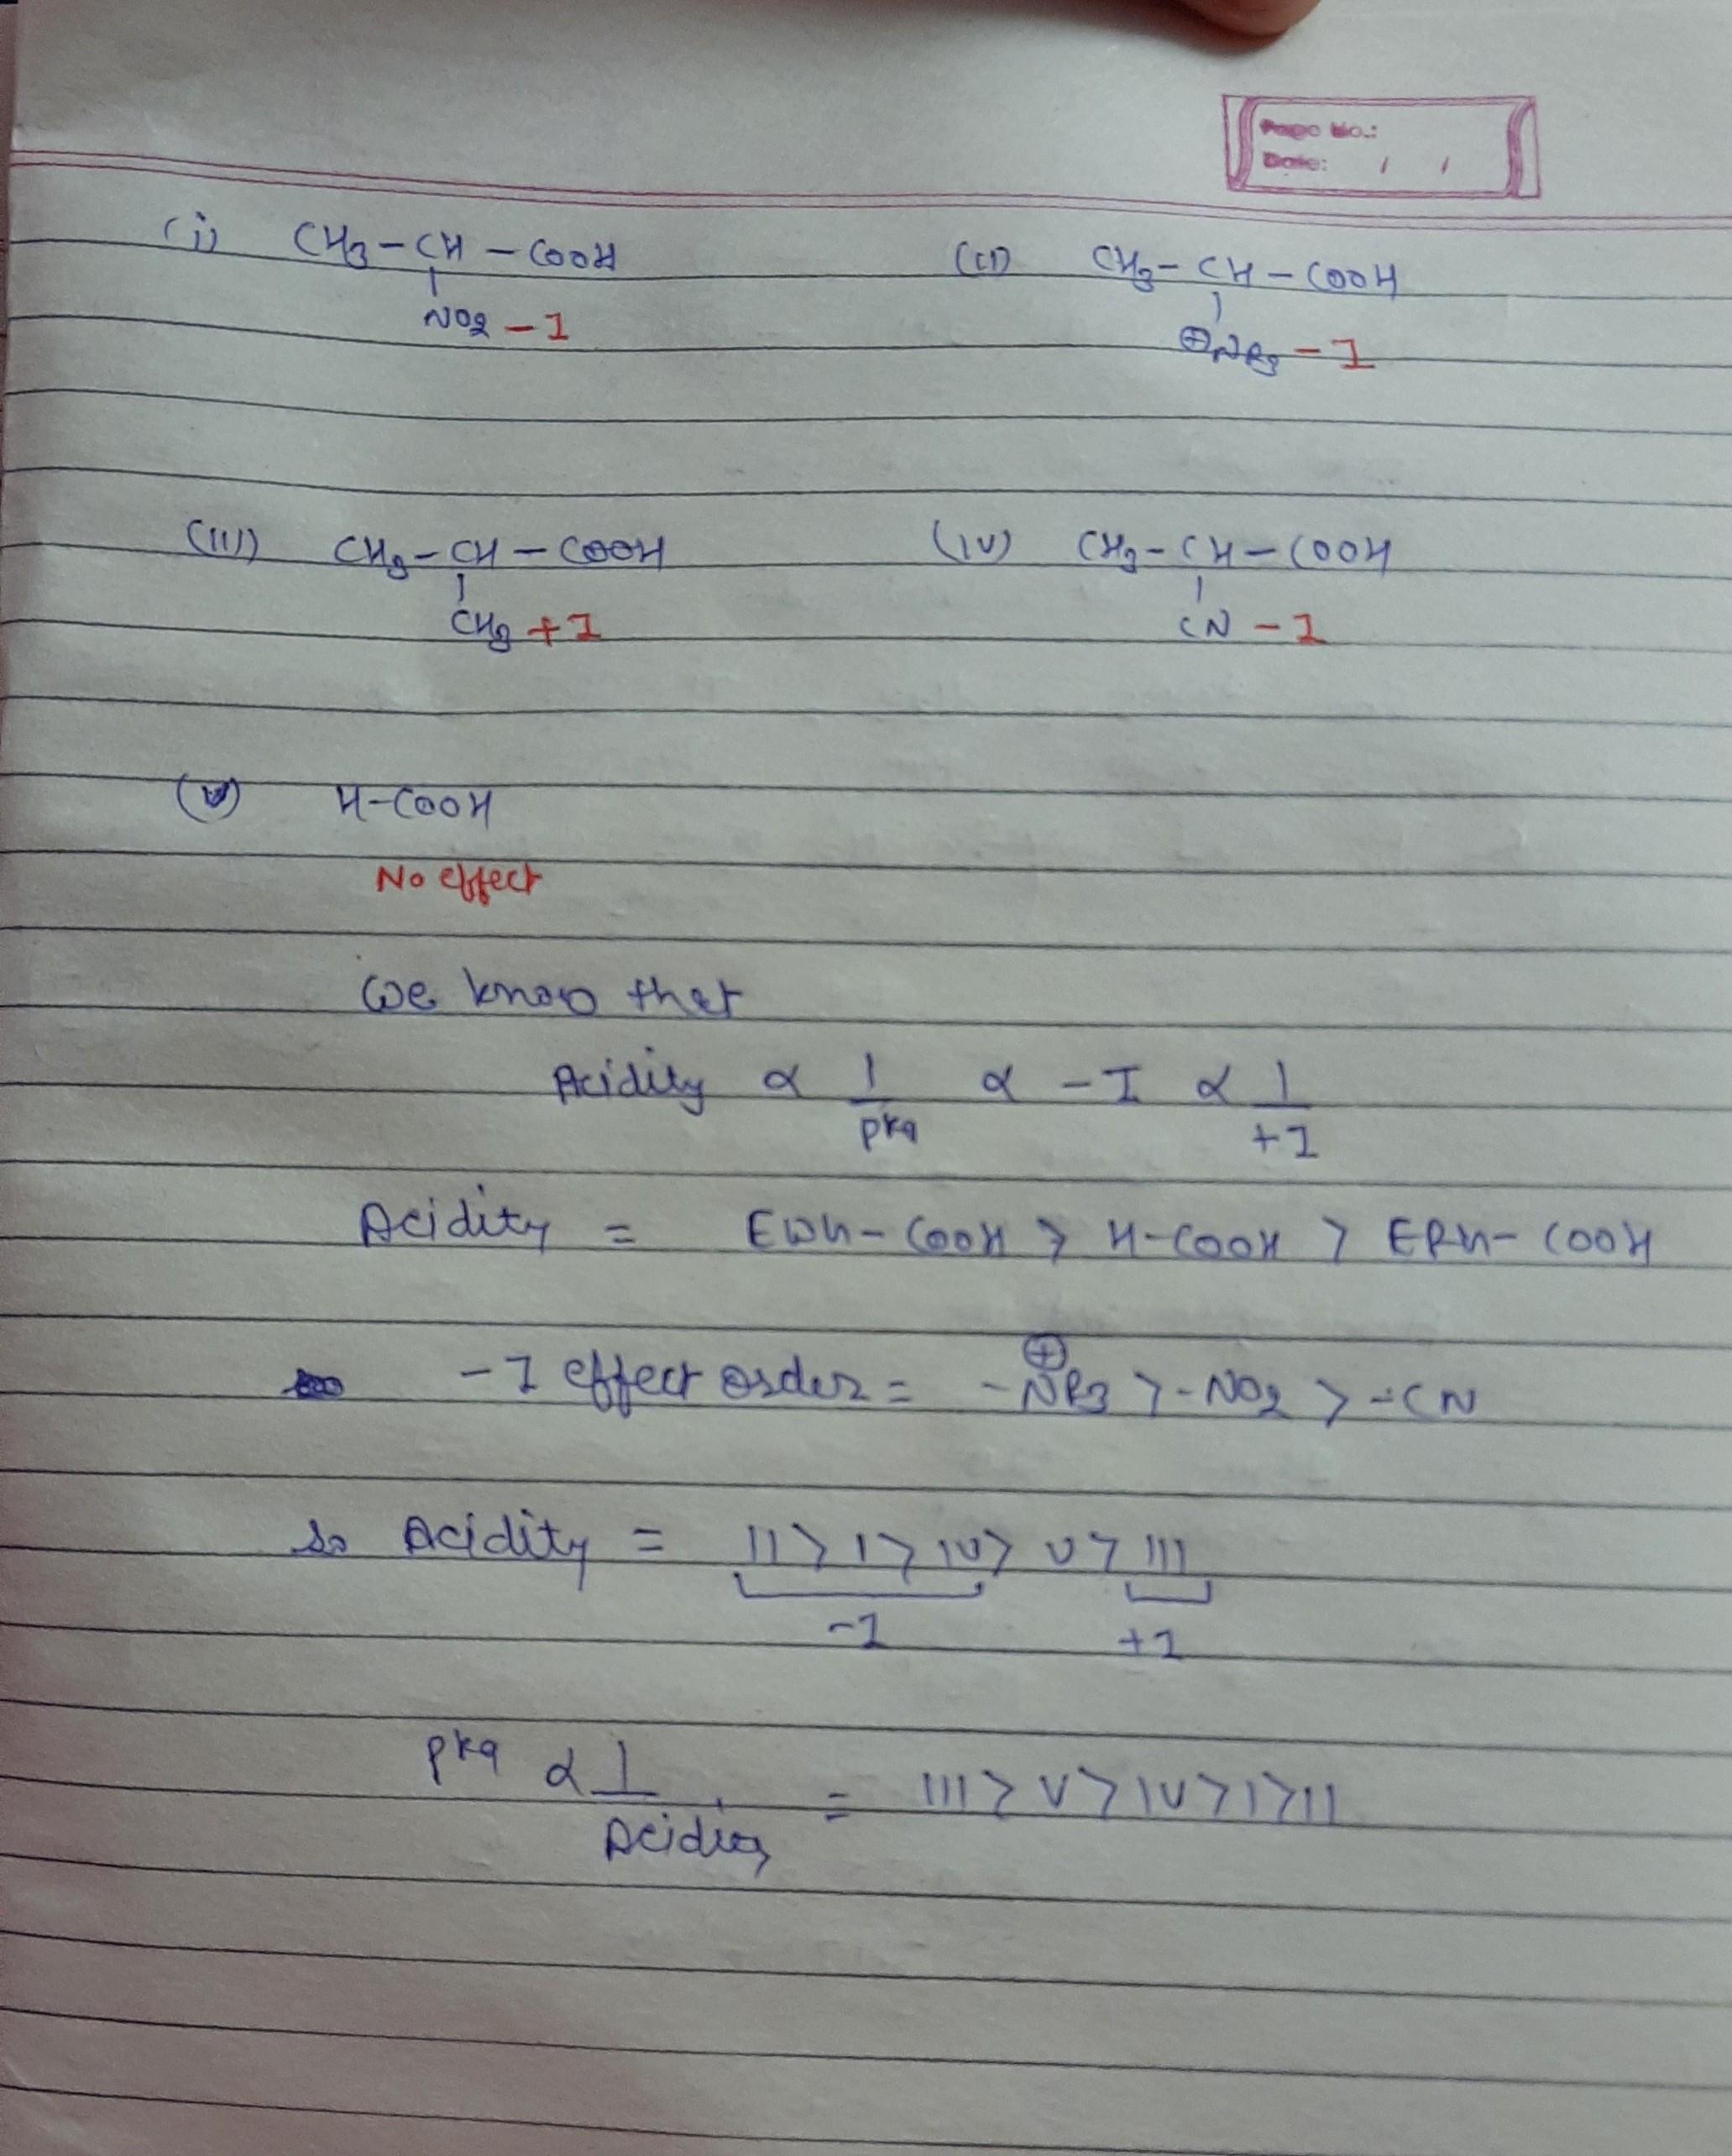 Page No.:
Date: / /
(i) CH3-CH-COOH (ii) CH3-CH-COOH
NO2 -I ⊕NR3 -I
(III) CH3-CH-COOH (IV) CH3-CH-COOH
CH3 +I CN -I
(V) H-COOH
No effect
We know that
Acidity α 1/pka α -I α 1/+I
Acidity = EWG-COOH > H-COOH > ERG-COOH
-I effect order = -⊕NR3 > -NO2 > -CN
So Acidity = II > I > IV > V > III
-I +I
pka α 1/Acidity = III > V > IV > I > II